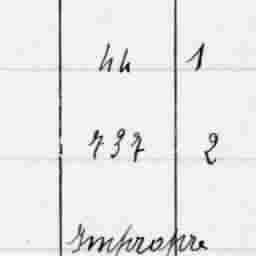 44 1
737 2
Impropre